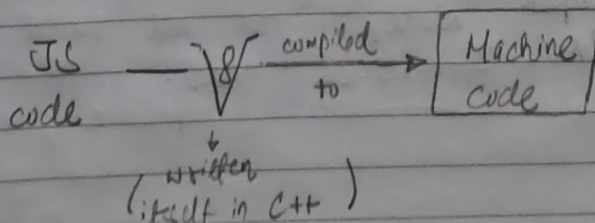 JS
code
V8
compiled
to
Machine
code
(written
itself in C++)